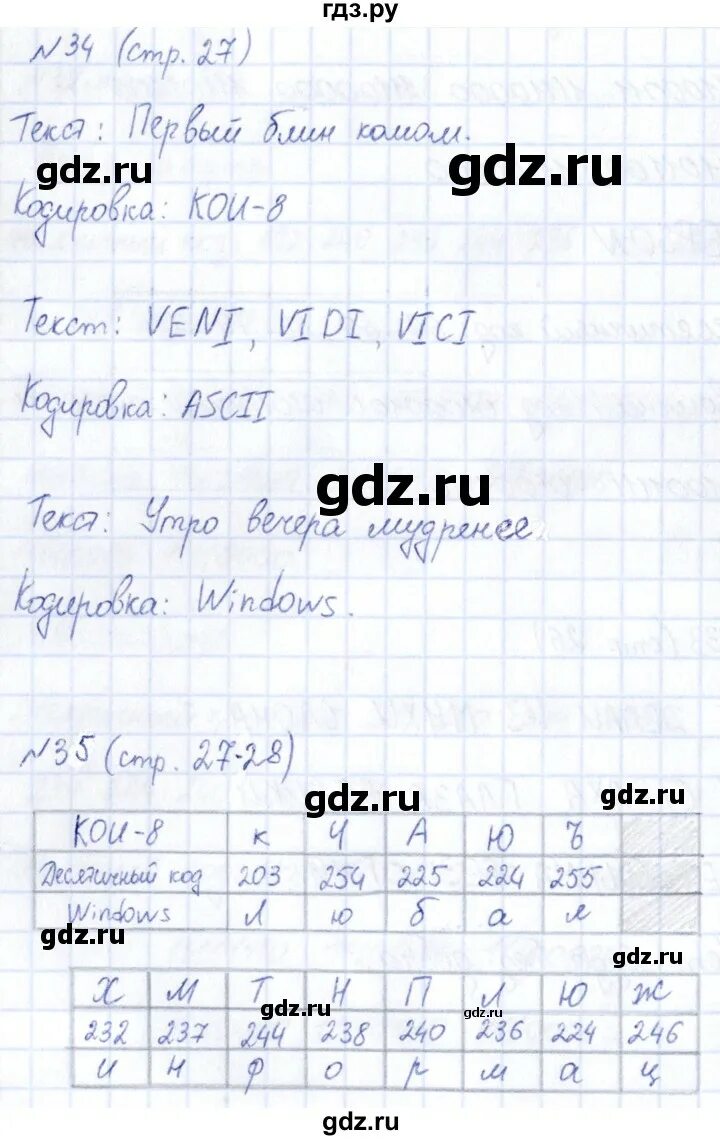 гдз.ру
№34 (стр. 27)
Текст: Первый блин комом.
gdz.ru gdz.ru
Кодировка: КОИ-8
Текст: VENI, VIDI, VICI
Кодировка: ASCII
gdz.ru
Текст: Утро вечера мудренее
Кодировка: Windows.
№35 (стр. 27-28)
gdz.ru gdz.ru
КОИ-8 к Ч А Ю Ъ
Десятичный код 203 254 225 224 255
Windows Л ю б а я
gdz.ru gdz.ru
Х М Т Н П Л Ю Ж
gdz.ru gdz.ru
232 237 244 238 240 236 224 246
и н ф о р м а ц
gdz.ru